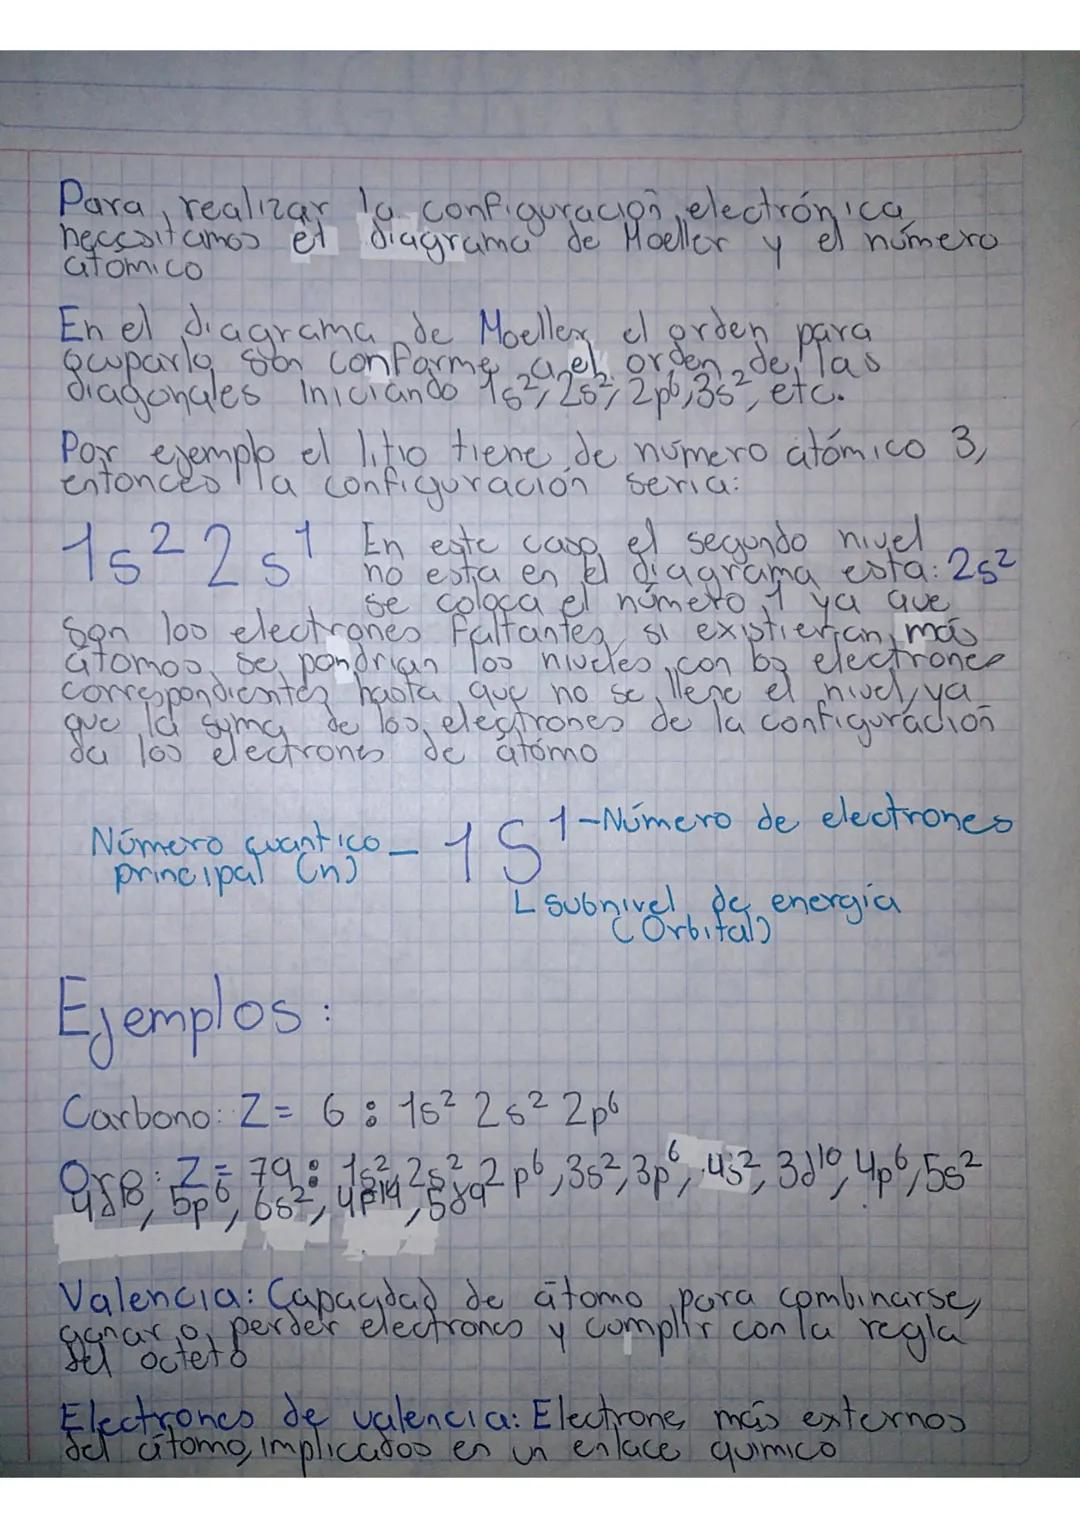 Para realizar la configuración electrónica
necesitamos el diagrama de Moeller y el número
atómico
En el diagrama de Moeller el orden para
ocuparlo son conforme a el orden de las
diagonales Iniciando 1s², 2s², 2p⁶, 3s², etc.
Por ejemplo el litio tiene de número atómico 3,
entonces la configuración seria:
1s² 2s¹ En este caso el segundo nivel
no esta en el diagrama esta: 2s²
se coloca el número 1 ya que
son los electrones faltantes, si existierian más
átomos se pondrian los niveles con los electrones
correspondientes hasta que no se llene el nivel, ya
que la suma de los electrones de la configuración
da los electrones de átomo
Número quantico principal (n) - 1S¹ - Número de electrones
L Subnivel de energía
(Orbital)
Ejemplos:
Carbono: Z= 6: 1s² 2s² 2p⁶
Oro: Z= 79: 1s², 2s², 2p⁶, 3s², 3p⁶, 4s², 3d¹⁰, 4p⁶, 5s²
5p⁶, 6s², 4f¹⁴, 5d9
Valencia: Capacidad de átomo para combinarse,
ganar o perder electrones y cumplir con la regla
del octeto
Electrones de valencia: Electrone más externos
del átomo, implicados en un enlace quimico